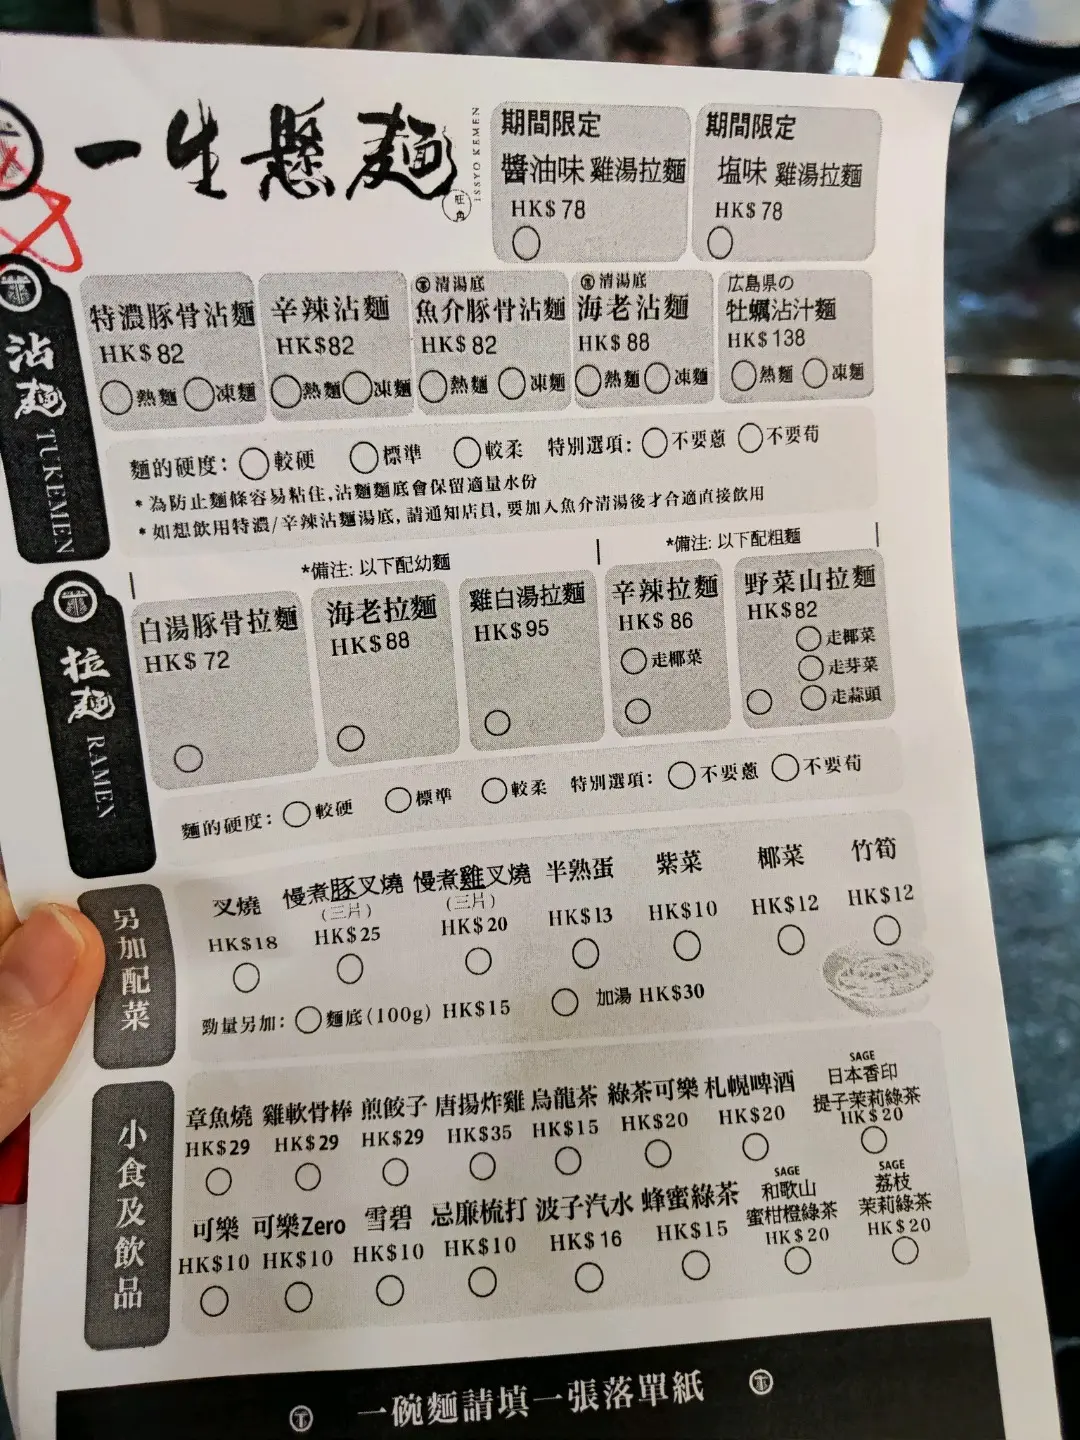 一生懸麵
旺角
ISSYO KEMEN
期間限定
醬油味 雞湯拉麵
HK$ 78
期間限定
塩味 雞湯拉麵
HK$ 78
沾麵 TUKEMEN
特濃豚骨沾麵
HK$ 82
熱麵 凍麵
辛辣沾麵
HK$82
熱麵 凍麵
清湯底
魚介豚骨沾麵
HK$ 82
熱麵 凍麵
清湯底
海老沾麵
HK$ 88
熱麵 凍麵
広島県の
牡蠣沾汁麵
HK$ 138
熱麵 凍麵
麵的硬度: 較硬 標準 較柔 特別選項: 不要蔥 不要荀
* 為防止麵條容易粘住,沾麵麵底會保留適量水份
* 如想飲用特濃/辛辣沾麵湯底, 請通知店員, 要加入魚介清湯後才合適直接飲用
*備注: 以下配幼麵
*備注: 以下配粗麵
拉麵 RAMEN
白湯豚骨拉麵
HK$ 72
海老拉麵
HK$ 88
雞白湯拉麵
HK$ 95
辛辣拉麵
HK$ 86
走椰菜
野菜山拉麵
HK$ 82
走椰菜
走芽菜
走蒜頭
麵的硬度: 較硬 標準 較柔 特別選項: 不要蔥 不要荀
另加配菜
叉燒
HK$18
慢煮豚叉燒
(三片)
HK$25
慢煮雞叉燒
(三片)
HK$ 20
半熟蛋
HK$ 13
紫菜
HK$10
椰菜
HK$12
竹筍
HK$12
勁量另加: 麵底(100g) HK$15 加湯 HK$30
小食及飲品
章魚燒 雞軟骨棒 煎餃子 唐揚炸雞 烏龍茶 綠茶可樂 札幌啤酒
HK$29 HK$29 HK$29 HK$35 HK$15 HK$20 HK$20
SAGE
日本香印
提子茉莉綠茶
HK$20
可樂 可樂Zero 雪碧 忌廉梳打 波子汽水 蜂蜜綠茶
HK$10 HK$10 HK$10 HK$10 HK$ 16 HK$15
SAGE
和歌山
蜜柑橙綠茶
HK$20
SAGE
荔枝
茉莉綠茶
HK$20
一碗麵請填一張落單紙